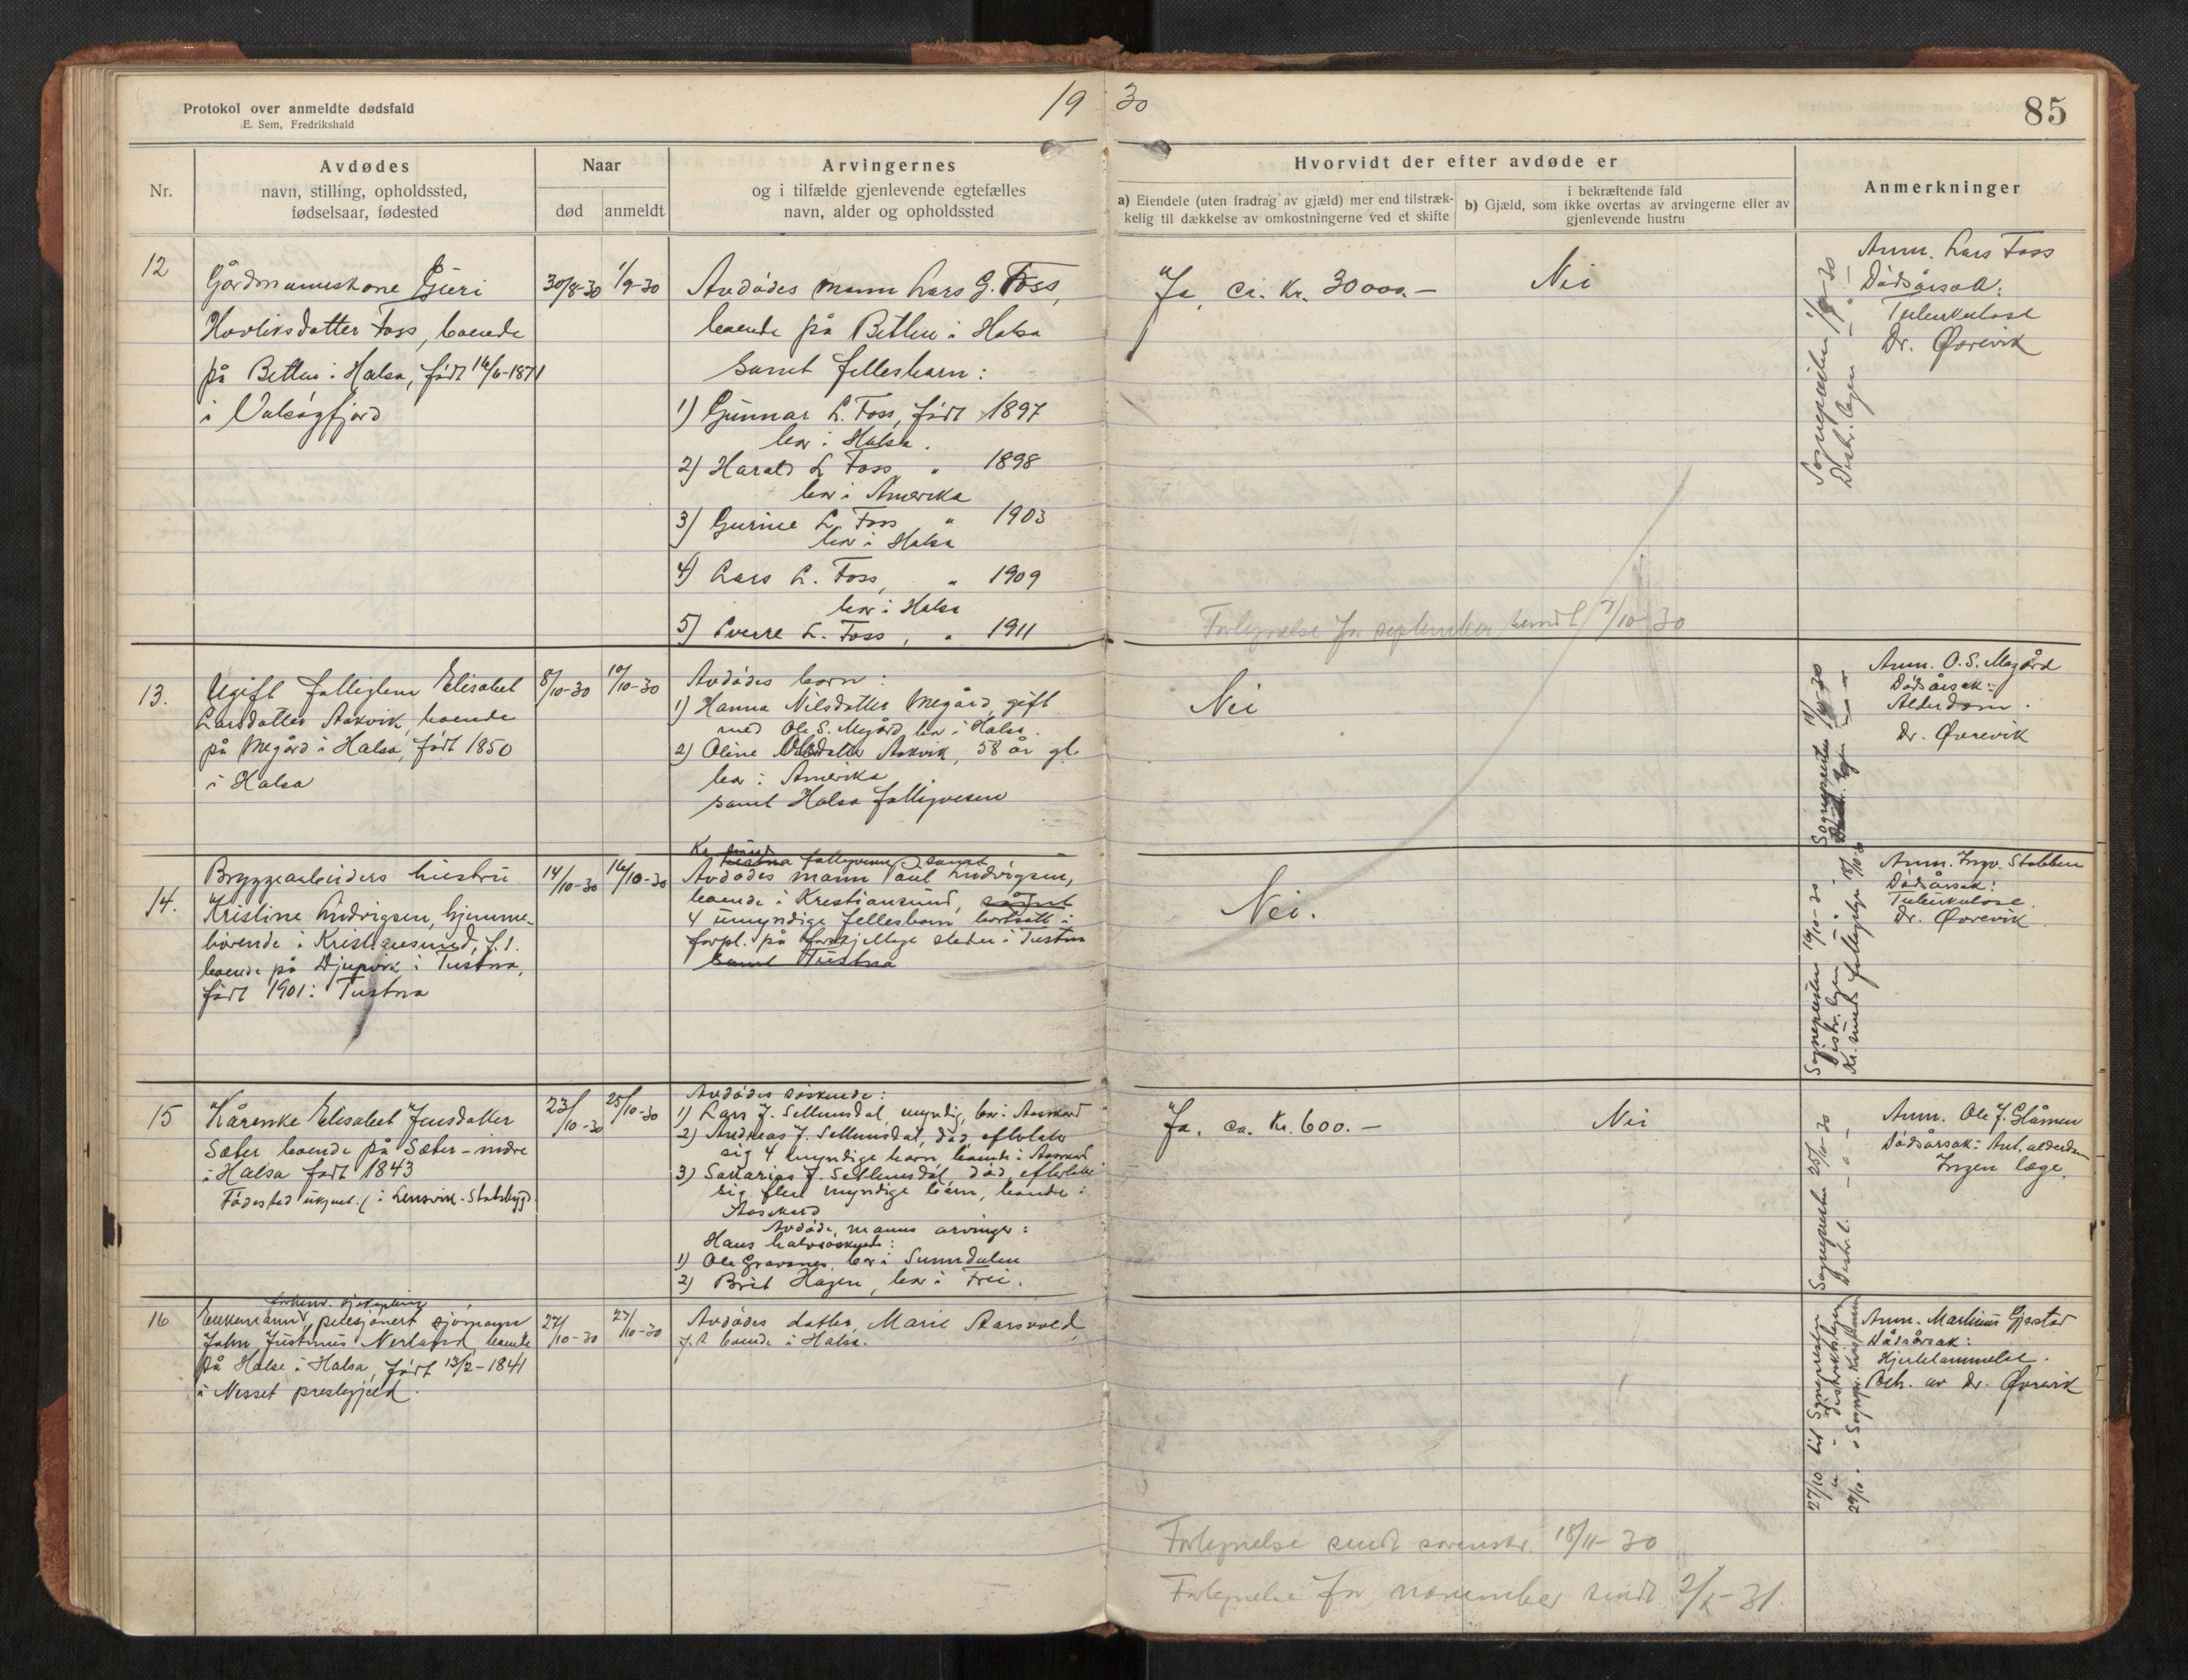 Protokol over anmeldte dødsfald
E. Sem, Fredrikshald
1930
85
Nr.
Avdødes
navn, stilling, opholdssted,
fødselsaar, fødested
Naar
død
anmeldt
Arvingernes
og i tilfælde gjenlevende egtefælles
navn, alder og opholdssted
Hvorvidt der efter avdøde er
a) Eiendele (uten fradrag av gjæld) mer end tilstræk-
kelig til dækkelse av omkostningerne ved et skifte
i bekræftende fald
b) Gjæld, som ikke overtas av arvingerne eller av
gjenlevende hustru
Anmerkninger
12
Gårdmannskone Guri
Hovlivsdatter Foss, boende
på Betten i Halsa, født 16/6-1871
i Valsøyfjord
30/8-30
1/9-30
Avdødes mann Lars G. Foss,
boende på Betten i Halsa
samt fellesbarn:
1) Gunnar L. Foss, født 1897
bor i Halsa.
2) Harald L. Foss " 1898
bor i Amerika
3) Gurine L. Foss " 1903
bor i Halsa
4) Lars L. Foss, " 1909
bor i Halsa
5) Sverre L. Foss, " 1911
Ja, ca. Kr. 30000.-
Nei
Forteynelse for september sendt 7/10-30
Sognepresten 1/9-30
Distr. legen - " -
Anm. Lars Foss
Dødsårsak:
Tuberkulose
Dr. Øvrevik
13.
Ugift fattiglem Elisabet
Larsdatter Aakvik, boende
på Megård i Halsa, født 1850
i Halsa
8/10-30
10/10-30
Avdødes barn:
1) Hanna Nilsdatter Megård, gift
med Ole S. Megård, bor i Halsa.
2) Oline Olsdatter Aakvik, 58 år gl.
bor i Amerika
samt Halsa fattigvesen
Nei
Sognepresten
Anm. O. S. Megård
Dødsårsak:
Alderdom.
Dr. Øvrevik
14.
Bryggearbeiders hustru
Kristine Ludvigsen, hjemme-
hørende i Kristiansund, f. t.
boende på Djupvik i Tustna,
født 1901 i Tustna
14/10-30
16/10-30
Kr. sund
Tustna fattigvesen samt
Avdødes mann Paul Ludvigsen,
boende i Kristiansund,
4 umyndige fellesbarn bortsatt i
forpl. på forskjellige steder i Tustna
samt Tustna
Nei.
Sognepresten 16/10-30
Distr. legen " -
Kr. sunds fattigstyre 18/10-30
Anm. Ingv. Stabben
Dødsårsak:
Tuberkulose.
Dr. Øvrevik
15
Kårenke Elisabet Jensdatter
Sæter boende på Sæter-indre
i Halsa født 1843
Fødested i Lensvik. Stadsbygd.
23/10-30
25/10-30
Avdødes søskende:
1) Lars J. Settemsdal, myndig, bor i Aasskard
2) Andreas J. Settemsdal, død, efterlater
sig 4 myndige barn, boende i Aasskard
3) Sakarias J. Settemsdal, død, efterlater
sig flere myndige barn, boende i
Aasskard
Avdøde manns arvinger:
Hans halvsøskende:
1) Ole Gravsnes, bor i Sunndalen
2) Brit Hagen, bor i Frei.
Ja. ca. Kr. 600.-
Nei
Sognepresten 25/10-30
Distr. l. - " -
Anm. Ole J. Glåmen
Dødsårsak: Ant. alderdom
Ingen læge.
16
Enkemann, pensjonert sjømann
John Justinus Nerland, boende
på Halse i Halsa, født 13/2-1841
i Nesset prestegjeld.
27/10-30
27/10-30
Avdødes datter, Marie Aarsvold,
f. t. boende i Halsa.
27/10 til Sognepresten
" - distriktslegen
29/10
Anm. Martinus Gjerstad
Dødsårsak:
Hjertelammelse.
Beh. av Dr. Øvrevik
Forteynelse sendt sorenskr. 18/11-30
Forteynelse for november sendt 2/1-31.